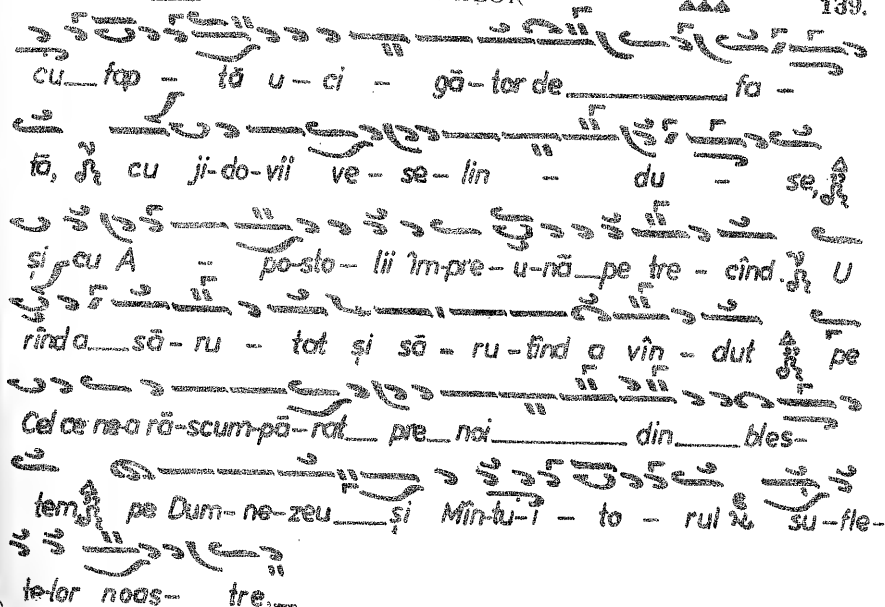 139.
cu fap - tă u - ci - gă - tor de fa -
tă, cu ji - do - vii ve - se - lin - du - se,
și cu A - po - sto - lii îm - pre - u - nă pe tre - cînd. U
rînd a să - ru - tat și să - ru - tînd a vîn - dut pe
Cel ce ne-a ră - scum - pă - rat pre noi din bles -
tem, pe Dum - ne - zeu și Mîn - tu - i - to - rul su - fle -
te - lor noas - tre.